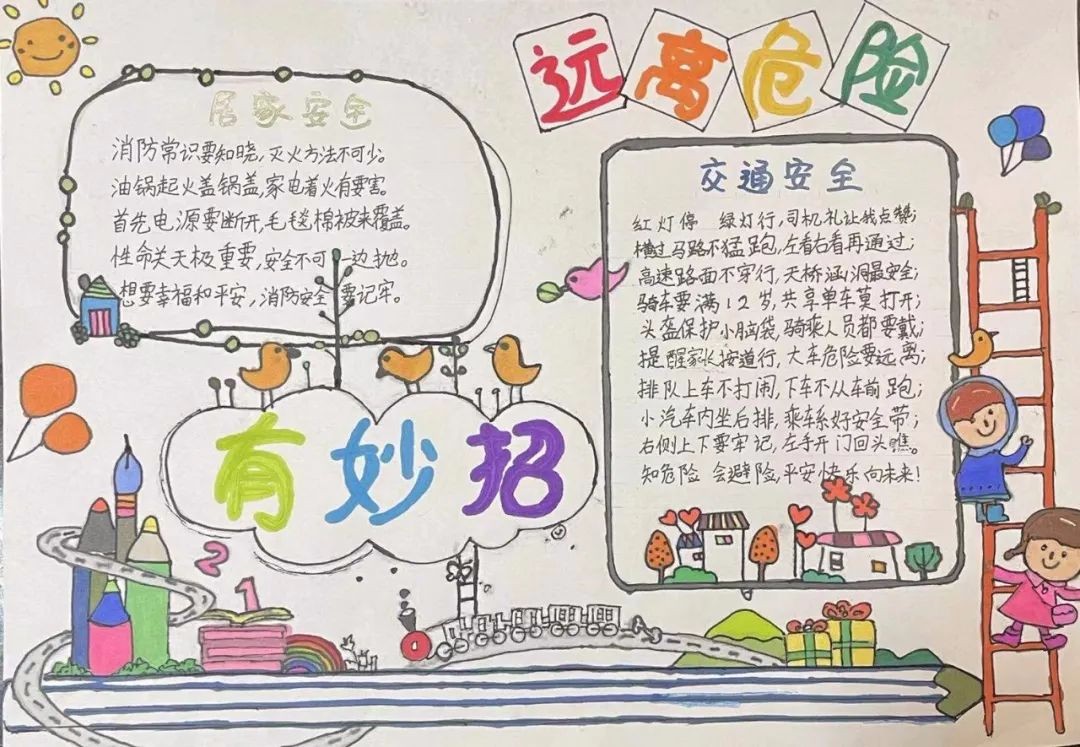 远离危险
居家安全
消防常识要知晓,灭火方法不可少。
油锅起火盖锅盖,家电着火有要害。
首先电源要断开,毛毯棉被来覆盖。
性命关天极重要,安全不可一边抛。
想要幸福和平安,消防安全要记牢。
有妙招
交通安全
红灯停 绿灯行,司机礼让我点赞;
横过马路不猛跑,左看右看再通过;
高速路面不穿行,天桥涵洞最安全;
骑车要满12岁,共享单车莫打开;
头盔保护小脑袋,骑乘人员都要戴;
提醒家长按道行,大车危险要远离;
排队上车不打闹,下车不从车前跑;
小汽车内坐后排,乘车系好安全带;
右侧上下要牢记,左手开门回头瞧。
知危险 会避险,平安快乐向未来!
2
1